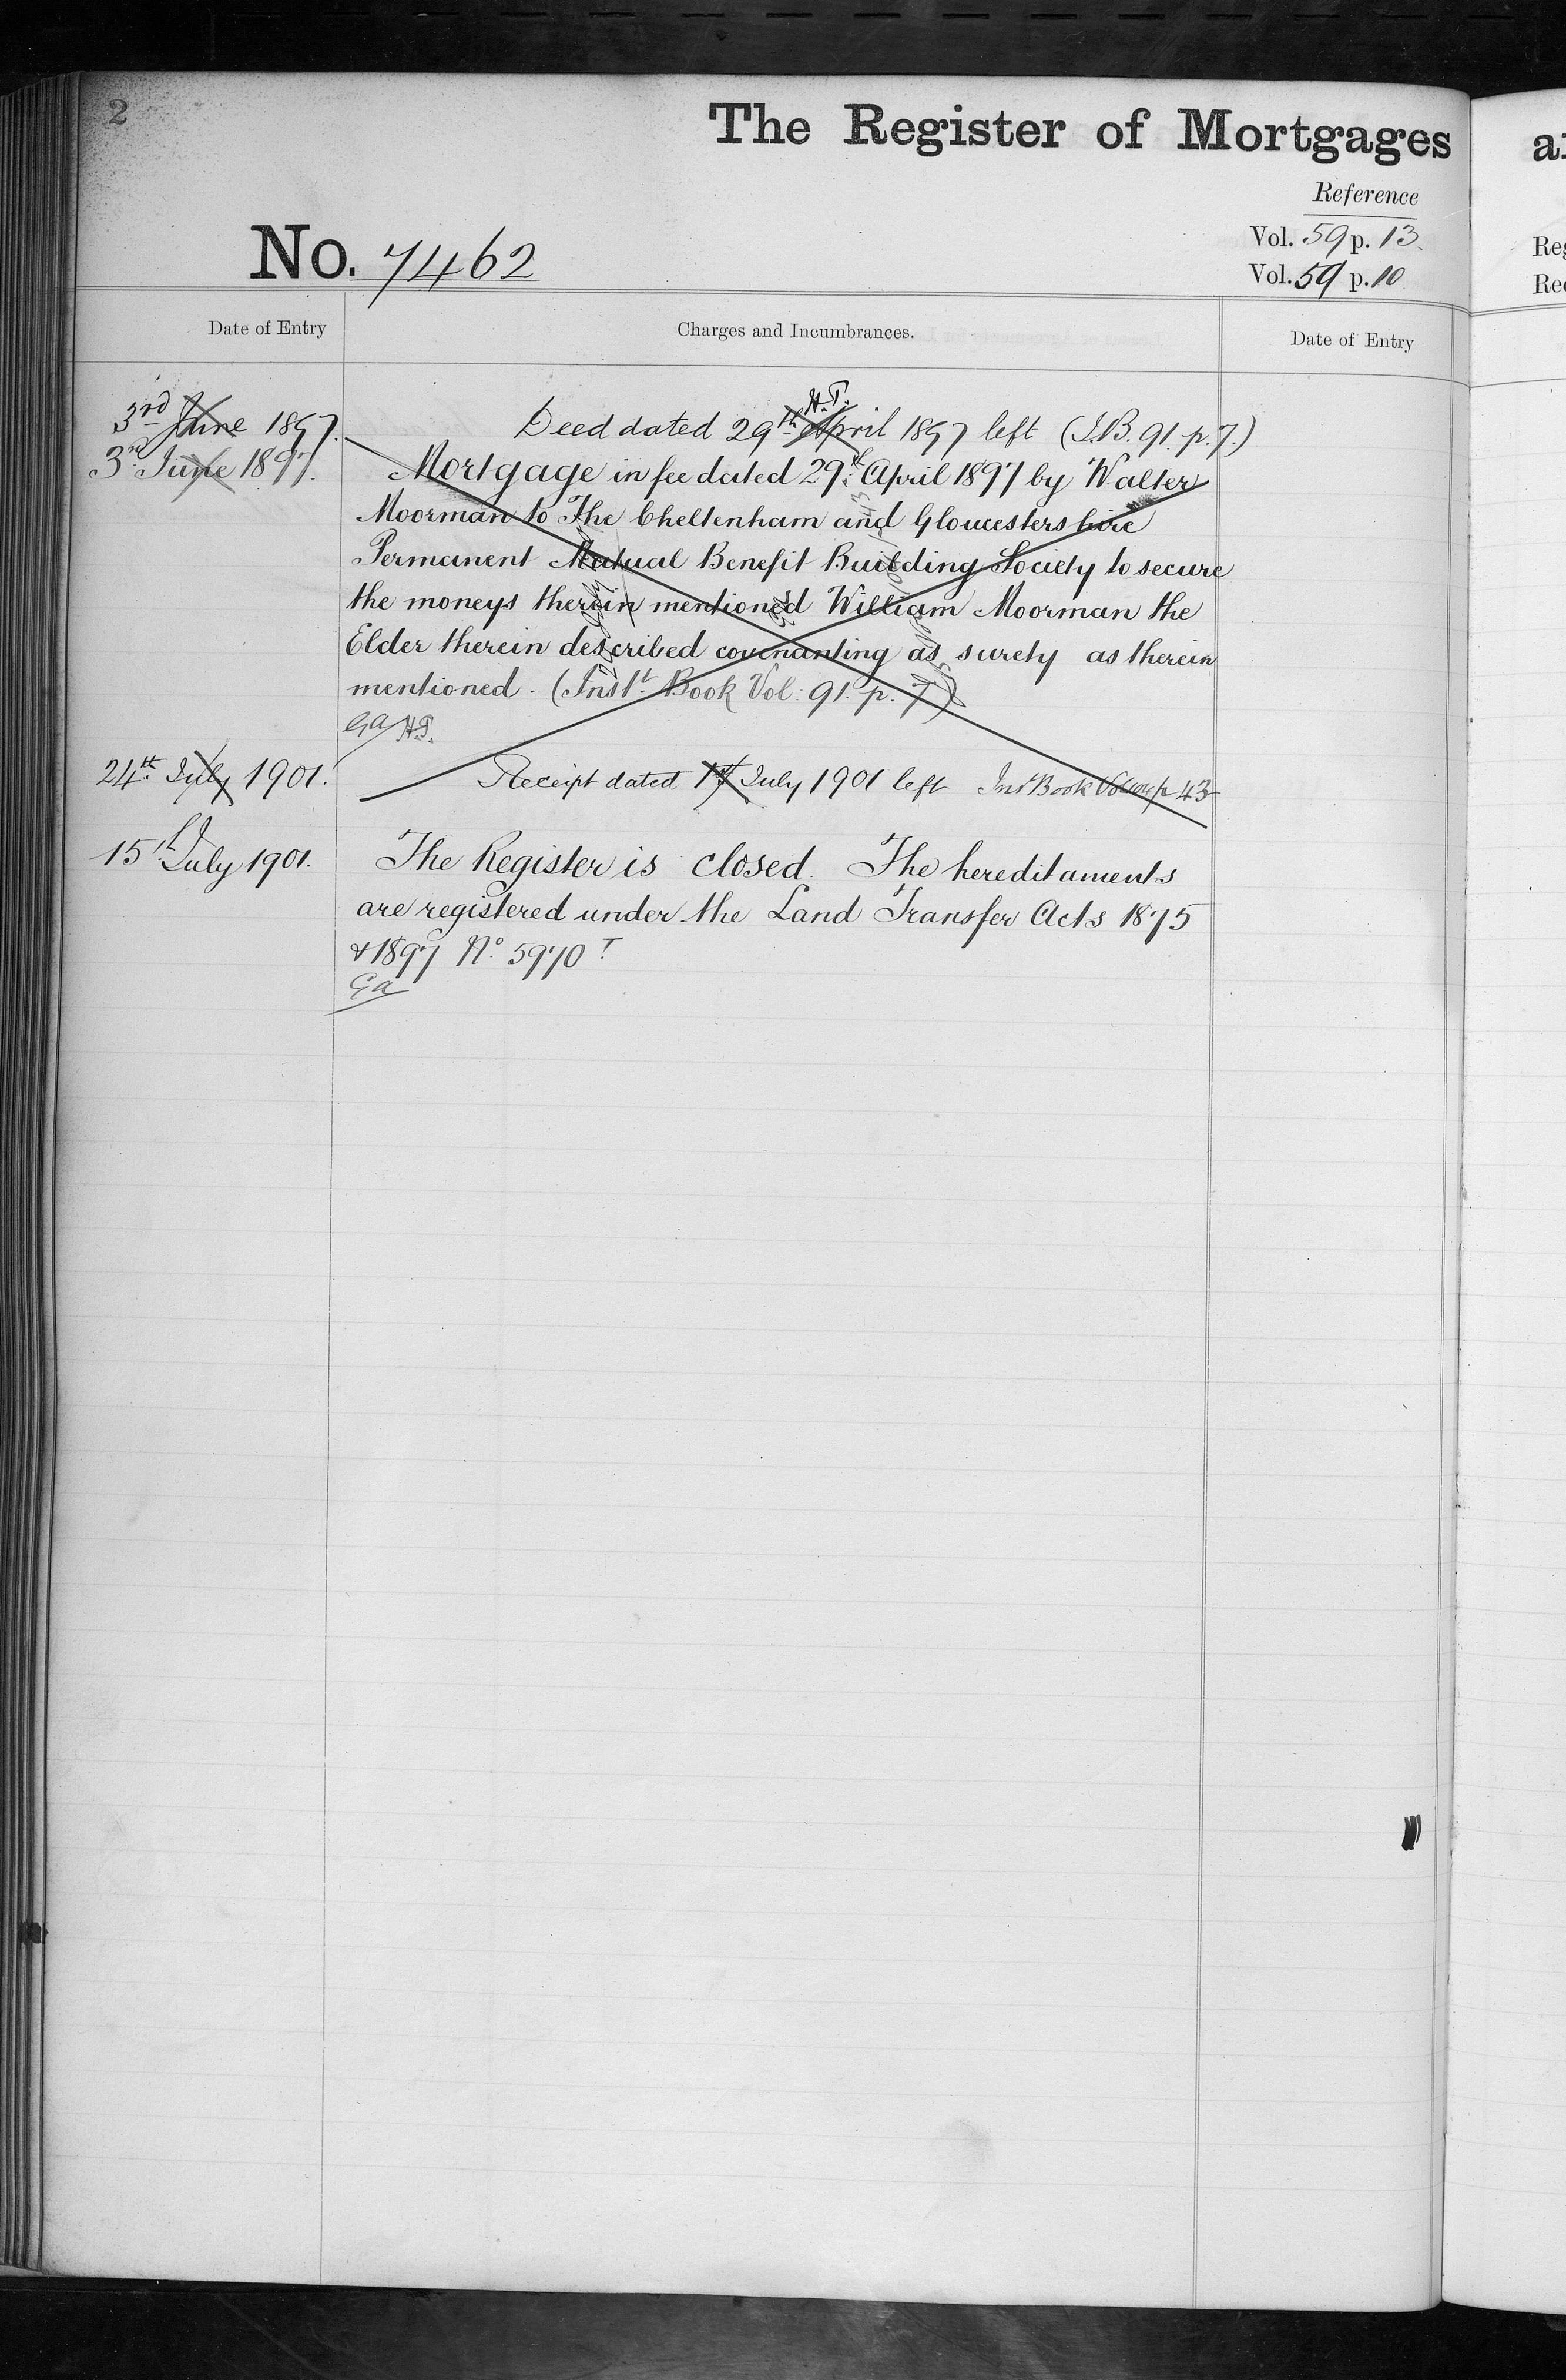 2
The Register of Mortgages
Reference
Vol. 59 p. 13
Vol. 59 p. 10
No. 7462
Date of Entry
Charges and Incumbrances.
Date of Entry
3rd June 1897.
H.T.
Deed dated 29th April 1897 left (I.B. 91. p. 7.)
3rd June 1897.
Mortgage in fee dated 29th April 1897 by Walter
Moorman to The Cheltenham and Gloucestershire
Permanent Mutual Benefit Building Society to secure
the moneys therein mentioned William Moorman the
Elder therein described covenanting as surety as therein
mentioned. (Instt. Book Vol: 91. p. 7)
Ga H.T.
24th July 1901.
Receipt dated 1st July 1901 left Inst Book Vol p 43
15th July 1901.
The Register is closed. The hereditaments
are registered under the Land Transfer Acts 1875
& 1897 No. 5970 T
Ga